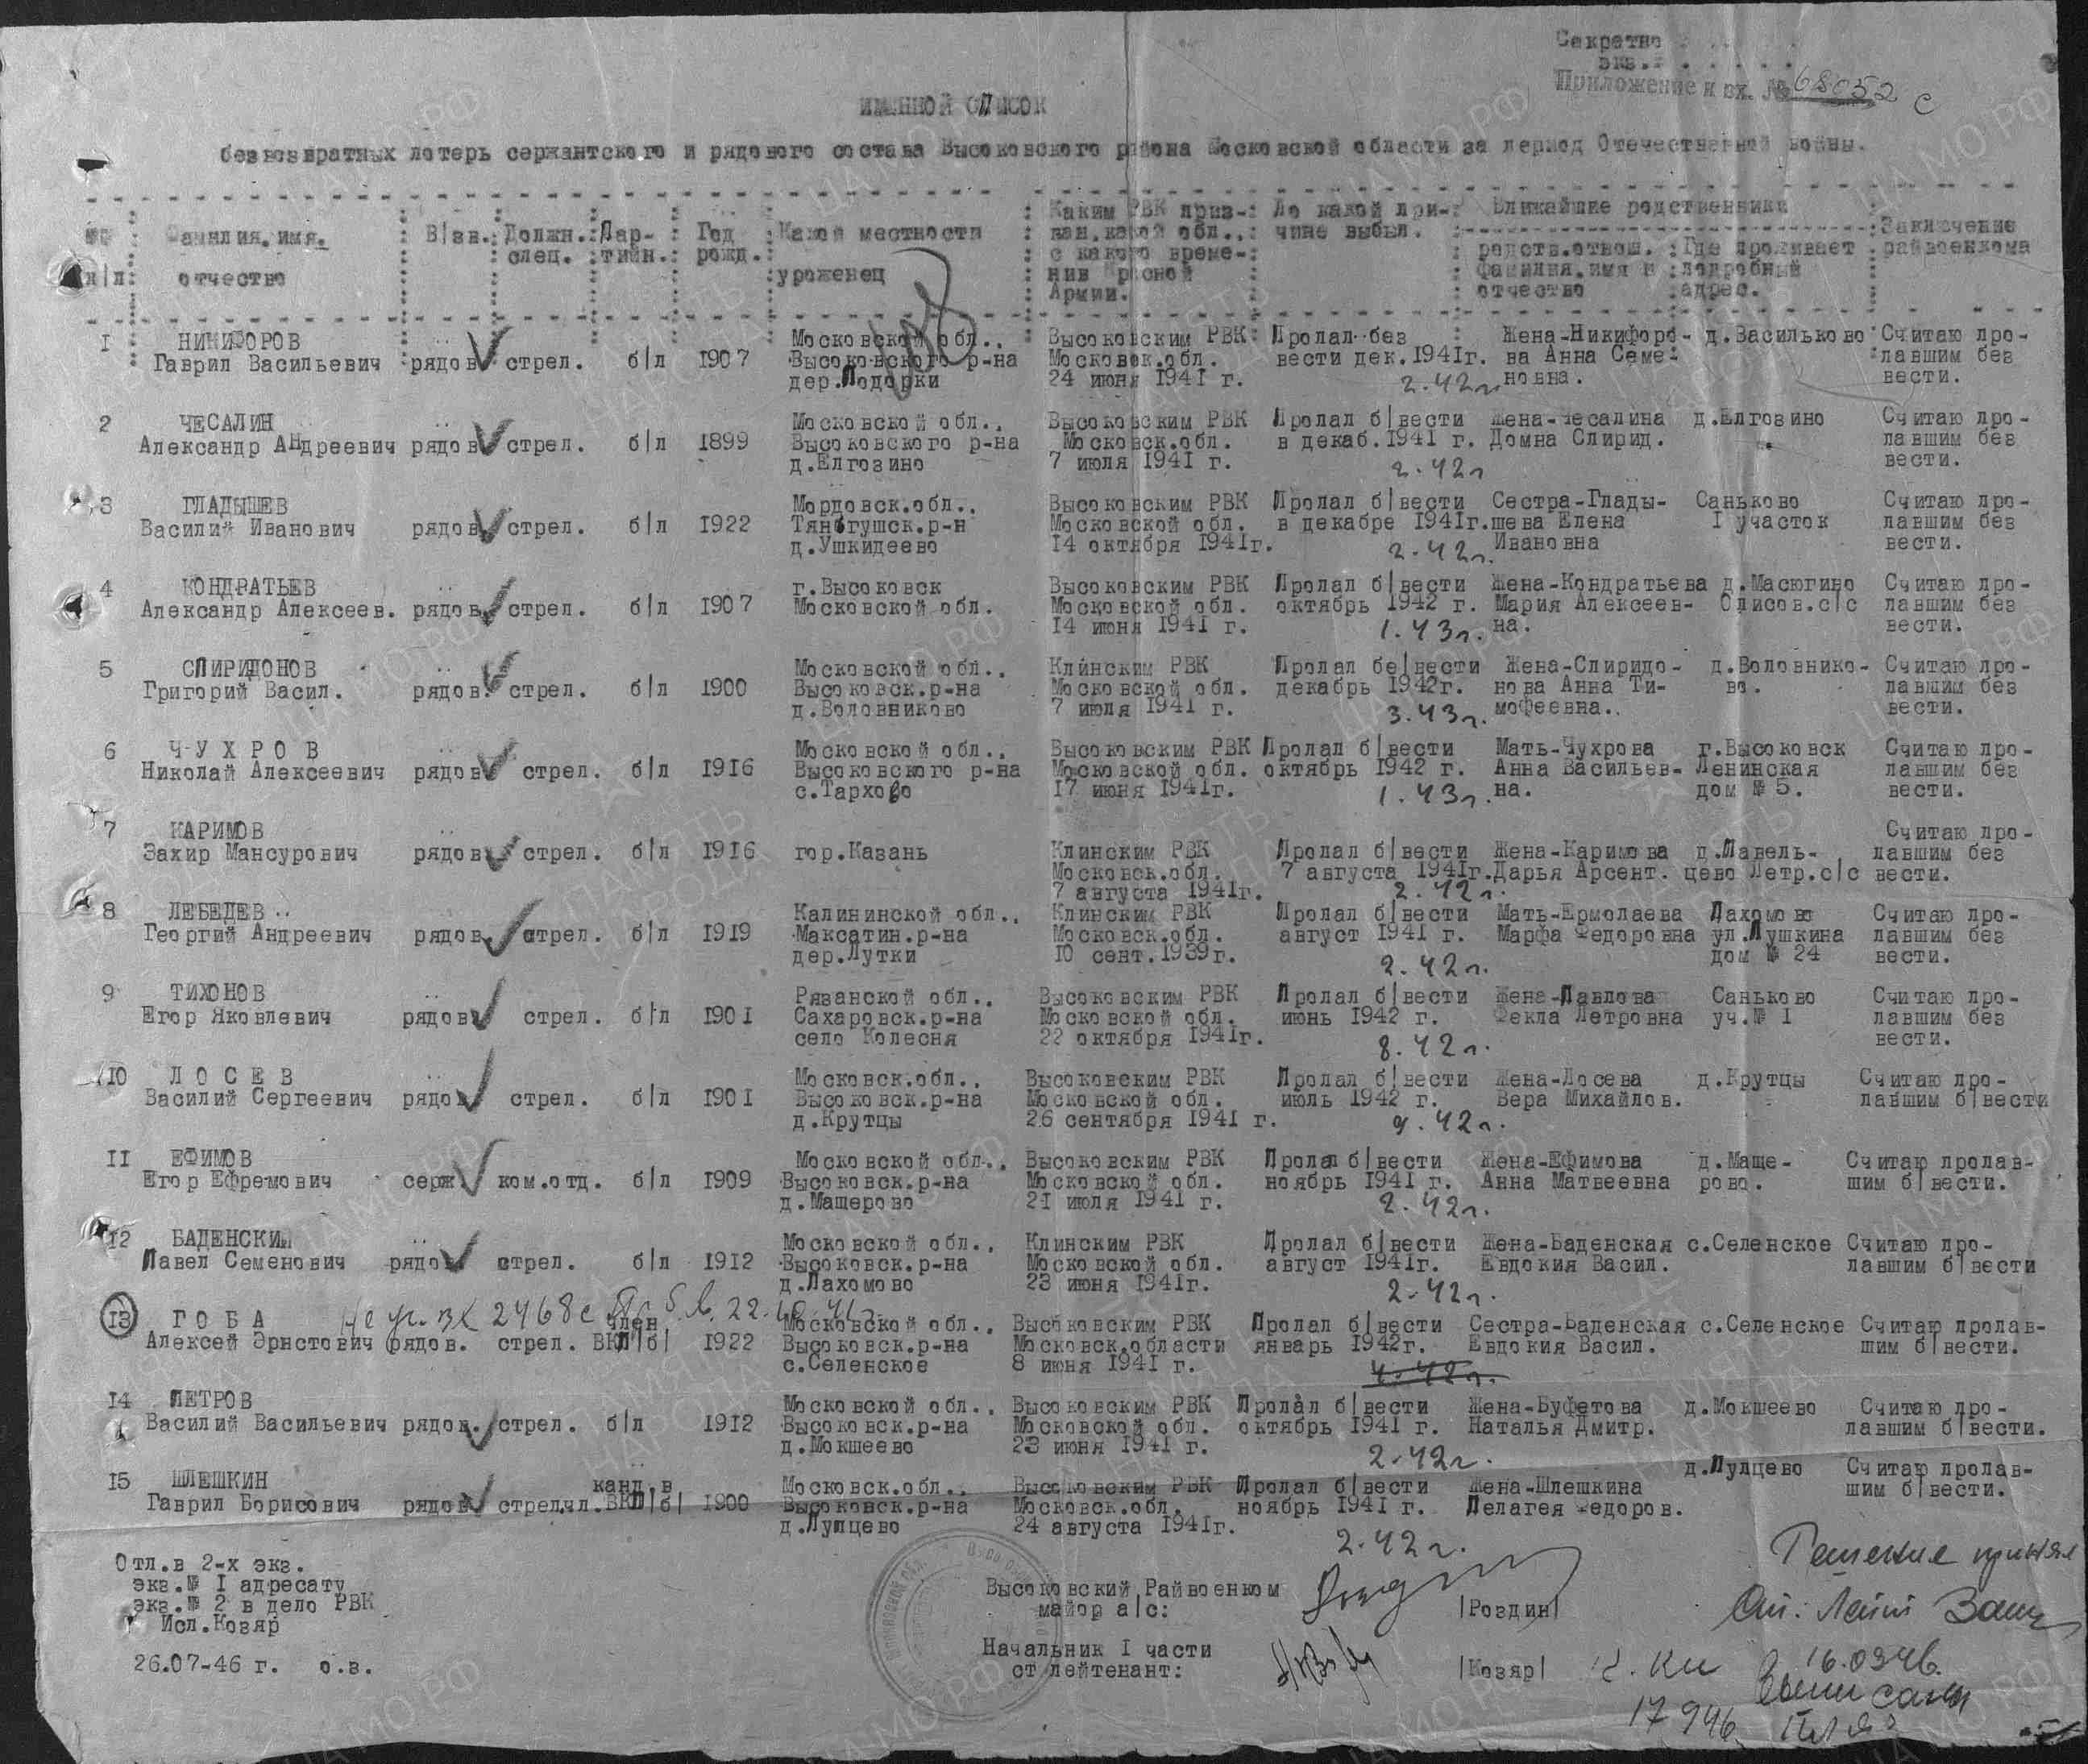 Секретно
экз.№
Приложение к вх. № 68052 с
ИМЕННОЙ СПИСОК
безвозвратных потерь сержантского и рядового состава Высоковского района Московской области за период Отечественной войны.
№№ п|п Фамилия, имя, отчество В/зв. Должн. спец. Пар-тийн. Год рожд. Какой местности уроженец Каким РВК приз-ван, какой обл., с какого време-ни в Красной Армии. По какой при-чине выбыл. Ближайшие родственники Заключение райвоенкома
родств.отнош. фамилия, имя и отчество Где проживает подробный адрес.
1 НИКИФОРОВ Московской обл., Высоковским РВК Пропал без Жена-Никифоро- д.Васильково Считаю про-
Гаврил Васильевич рядов. стрел. б|п 1907 Высоковского р-на Московск.обл. вести дек.1941г. ва Анна Семе- павшим без
дер.Подорки 24 июня 1941 г. 2.42г. новна. вести.
2 ЧЕСАЛИН Московской обл., Высоковским РВК Пропал б|вести Жена-Чесалина д.Елгозино Считаю про-
Александр Андреевич рядов стрел. б|п 1899 Высоковского р-на Московск.обл. в декаб.1941 г. Домна Спирид. павшим без
д.Елгозино 7 июля 1941 г. 2.42г вести.
3 ГЛАДЫШЕВ Мордовск.обл., Высоковским РВК Пропал б|вести Сестра-Глады- Саньково Считаю про-
Василий Иванович рядов стрел. б|п 1922 Тянгушск.р-н Московской обл. в декабре 1941г. шева Елена 1 участок павшим без
д.Ушкидеево 14 октября 1941г. 2.42г. Ивановна вести.
4 КОНДРАТЬЕВ г.Высоковск Высоковским РВК Пропал б|вести Жена-Кондратьева д.Масюгино Считаю про-
Александр Алексеев. рядов. стрел. б|п 1907 Московской обл. Московской обл. октябрь 1942 г. Мария Алексеев- Описов.с|с павшим без
14 июня 1941 г. 1.43г. на. вести.
5 СПИРИДОНОВ Московской обл., Клинским РВК Пропал бе|вести Жена-Спиридо- д.Воловнико- Считаю про-
Григорий Васил. рядов. стрел. б|п 1900 Высоковск.р-на Московской обл. декабрь 1942г. нова Анна Ти- во. павшим без
д.Воловниково 7 июля 1941 г. 3.43г. мофеевна. вести.
6 ЧУХРОВ Московской обл., Высоковским РВК Пропал б|вести Мать-Чухрова г.Высоковск Считаю про-
Николай Алексеевич рядов стрел. б|п 1916 Высоковского р-на Московской обл. октябрь 1942 г. Анна Васильев- Ленинская павшим без
с.Тархово 17 июня 1941г. 1.43г. на. дом № 5. вести.
7 КАРИМОВ Считаю про-
Захир Мансурович рядов стрел. б|п 1916 гор.Казань Клинским РВК Пропал б|вести Жена-Каримова д.Павель- павшим без
Московск.обл. 7 августа 1941г. Дарья Арсент. цево Петр.с|с вести.
7 августа 1941г. 2.42г.
8 ЛЕБЕДЕВ Калининской обл., Клинским РВК Пропал б|вести Мать-Ермолаева Пахомово Считаю про-
Георгий Андреевич рядов. стрел. б|п 1919 Максатин.р-на Московск.обл. август 1941 г. Марфа Федоровна ул.Пушкина павшим без
дер.Лутки 10 сент.1939г. 2.42г. дом № 24 вести.
9 ТИХОНОВ Рязанской обл., Высоковским РВК Пропал б|вести Жена-Павлова Саньково Считаю про-
Егор Яковлевич рядов стрел. б|п 1901 Сахаровск.р-на Московской обл. июнь 1942 г. Фекла Петровна уч.№ 1 павшим без
село Колесня 22 октября 1941г. 8.42г. вести.
10 ЛОСЕВ Московск.обл., Высоковским РВК Пропал б|вести Жена-Лосева д.Крутцы Считаю про-
Василий Сергеевич рядов стрел. б|п 1901 Высоковск.р-на Московской обл. июль 1942 г. Вера Михайлов. павшим б|вести
д.Крутцы 26 сентября 1941 г. 9.42г.
11 ЕФИМОВ Московской обл., Высоковским РВК Пропал б|вести Жена-Ефимова д.Маще- Считаю пропав-
Егор Ефремович серж ком.отд. б|п 1909 Высоковск.р-на Московской обл. ноябрь 1941 г. Анна Матвеевна рово. шим б|вести.
д.Мащерово 21 июля 1941 г. 2.42г.
12 БАДЕНСКИЙ Московской обл., Клинским РВК Пропал б|вести Жена-Баденская с.Селенское Считаю про-
Павел Семенович рядов стрел. б|п 1912 Высоковск.р-на Московской обл. август 1941г. Евдокия Васил. павшим б|вести
д.Пахомово 23 июня 1941г. 2.42г.
13 ГОБА член Московской обл., Высоковским РВК Пропал б|вести Сестра-Баденская с.Селенское Считаю пропав-
Алексей Эрнстович рядов. стрел. ВКП|б| 1922 Высоковск.р-на Московск.области январь 1942г. Евдокия Васил. шим б|вести.
с.Селенское 8 июня 1941 г. 4.42г.
14 ПЕТРОВ Московской обл., Высоковским РВК Пропал б|вести Жена-Буфетова д.Мокшеево Считаю про-
Василий Васильевич рядов. стрел. б|п 1912 Высоковск.р-на Московской обл. октябрь 1941 г. Наталья Дмитр. павшим б|вести.
д.Мокшеево 23 июня 1941 г. 2.42г.
15 ШЛЕШКИН канд.в Московск.обл., Высоковским РВК Пропал б|вести Жена-Шлешкина д.Пупцево Считаю пропав-
Гаврил Борисович рядов стрел.чл.ВКП|б| 1900 Высоковск.р-на Московск.обл. ноябрь 1941 г. Пелагея Федоров. шим б|вести.
д.Пупцево 24 августа 1941г. 2.42г.
Отп.в 2-х экз.
экз.№ 1 адресату
экз.№ 2 в дело РВК
Исп.Козяр
26.07-46 г. о.в.
Высоковский Райвоенком
майор а|с: |Роздин|
Начальник 1 части
ст лейтенант: |Козяр|
Решение принял
Ст. Лейт
16.0946.
17 946